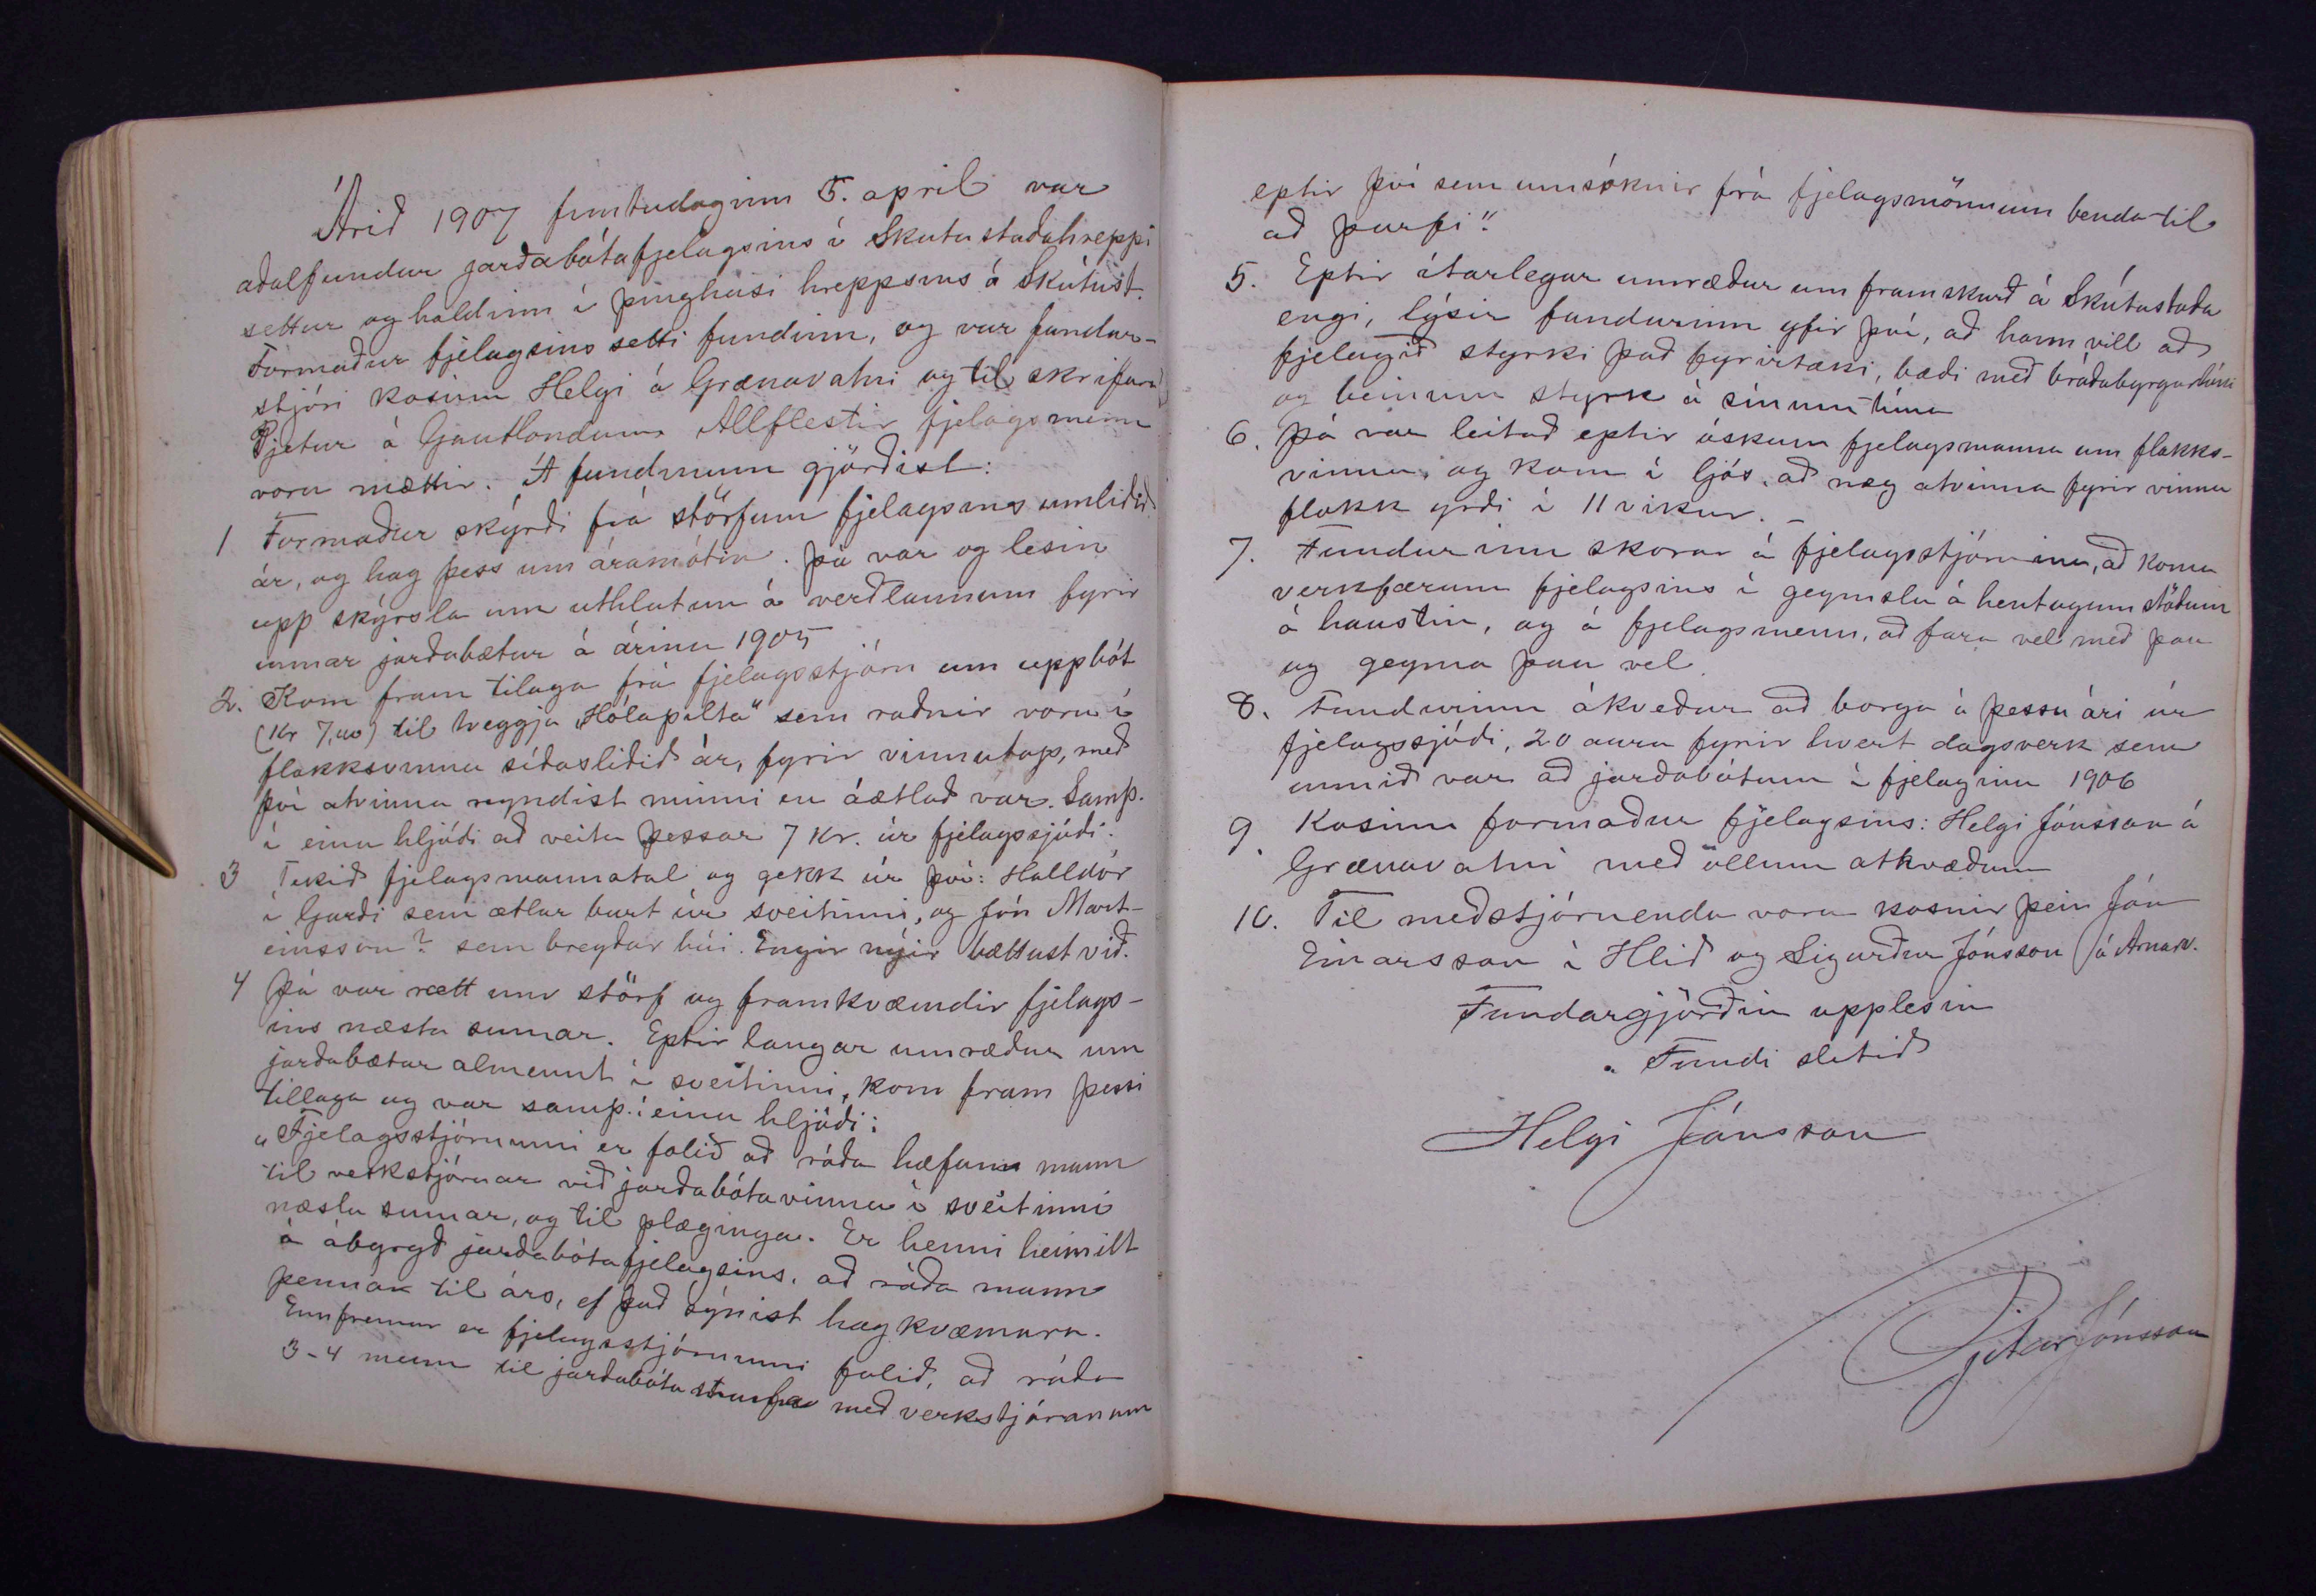 Árið 1907 fimtudaginn 5. april var
aðalfundur jarðabótafjelagsins í Skútustaðahreppi
settur og haldinn í þinghúsi hreppsins á Skútust.
Formaður fjelagsins setti fundinn, og var fundar-
stjóri kosinn Helgi á Grænavatni og til skrifara
Pjetur á Gautlondum. Allflestir fjelagsmenn
voru mættir. Á fundinum gjörðist:
1 Formaður skýrði frá störfum fjelagsins umliðið
ár, og hag þess um áramótin. Þá var og lesin
upp skýrsla um uthlutun á verðlaunum fyrir
unnar jarðabætur á árinu 1905
2. Kom fram tilaga frá fjelagsstjórn um uppbót
(Kr 7,00) til tveggja "Hólapilta" sem raðnir voru í
flokksvinnu síðasliðið ár, fyrir vinnutap, með
því atvinna reyndist minni en áætlað var. Samþ.
í einu hljóði að veita þessar 7 Kr. úr fjelagssjóði.
3 Tekið fjelagsmannatal og gekk úr því: Halldór
í Garði sem ætlar burt úr sveitinni, og Jón Mart-
einsson? sem bregður búi. Engir nýir bættust við.
4 Þá var rætt um störf og framkvæmdir fjelags-
ins næsta sumar. Eptir langar umræður um
jarðabætur almennt í sveitinni, kom fram þessi
tillaga og var samþ. í einu hljóði:
"Fjelagsstjórninni er falið að ráða hæfann mann
til verkstjórnar við jarðabótavinnu í sveitinni
næsta sumar, og til plæginga. Er henni heimilt
á ábyrgð jarðabótafjelagsins, að ráða mann
þennan til árs, ef það sýnist hagkvæmara.
Ennfremur er fjelagsstjórninni falið, að ráða
3-4 menn til jarðabóta starfa með verkstjóranum
eptir því sem umsóknir frá fjelagsmönnum benda til
að þurfi".
5. Eptir ítarlegar umræður um framskurð á Skútustaða
engi, lýsir fundurinn yfir því, að hann vill að
fjelagið styrki það fyrirtæki, bæði með bráðabyrgarláni
og beinum styrk á sínum tíma
6. Þá var leitað eptir óskum fjelagsmanna um flokks-
vinnu, og kom í ljós, að næg atvinna fyrir vinnu
flokk yrði í 11 vikur. -
7. Fundurinn skorar á fjelagsstjórnina, að koma
verkfærum fjelagsins í geymslu á hentugum stöðum
á haustin, og á fjelagsmenn, að fara vel með þau
og geyma þau vel.
8. Fundurinn ákveður að borga á þessu ári úr
fjelagssjóði, 20 aura fyrir hvert dagsverk sem
unnið var að jarðabótum í fjelaginu 1906
9. Kosinn formaður fjelagsins: Helgi Jónsson á
Grænavatni með öllum atkvæðum
10. Til meðstjórnenda voru kosnir þeir Jón
Einarsson í Hlið og Sigurður Jónsson á Arnarv.
Fundargjörðin upplesin
Fundi slitið
Helgi Jónsson
Pjetur Jónsson